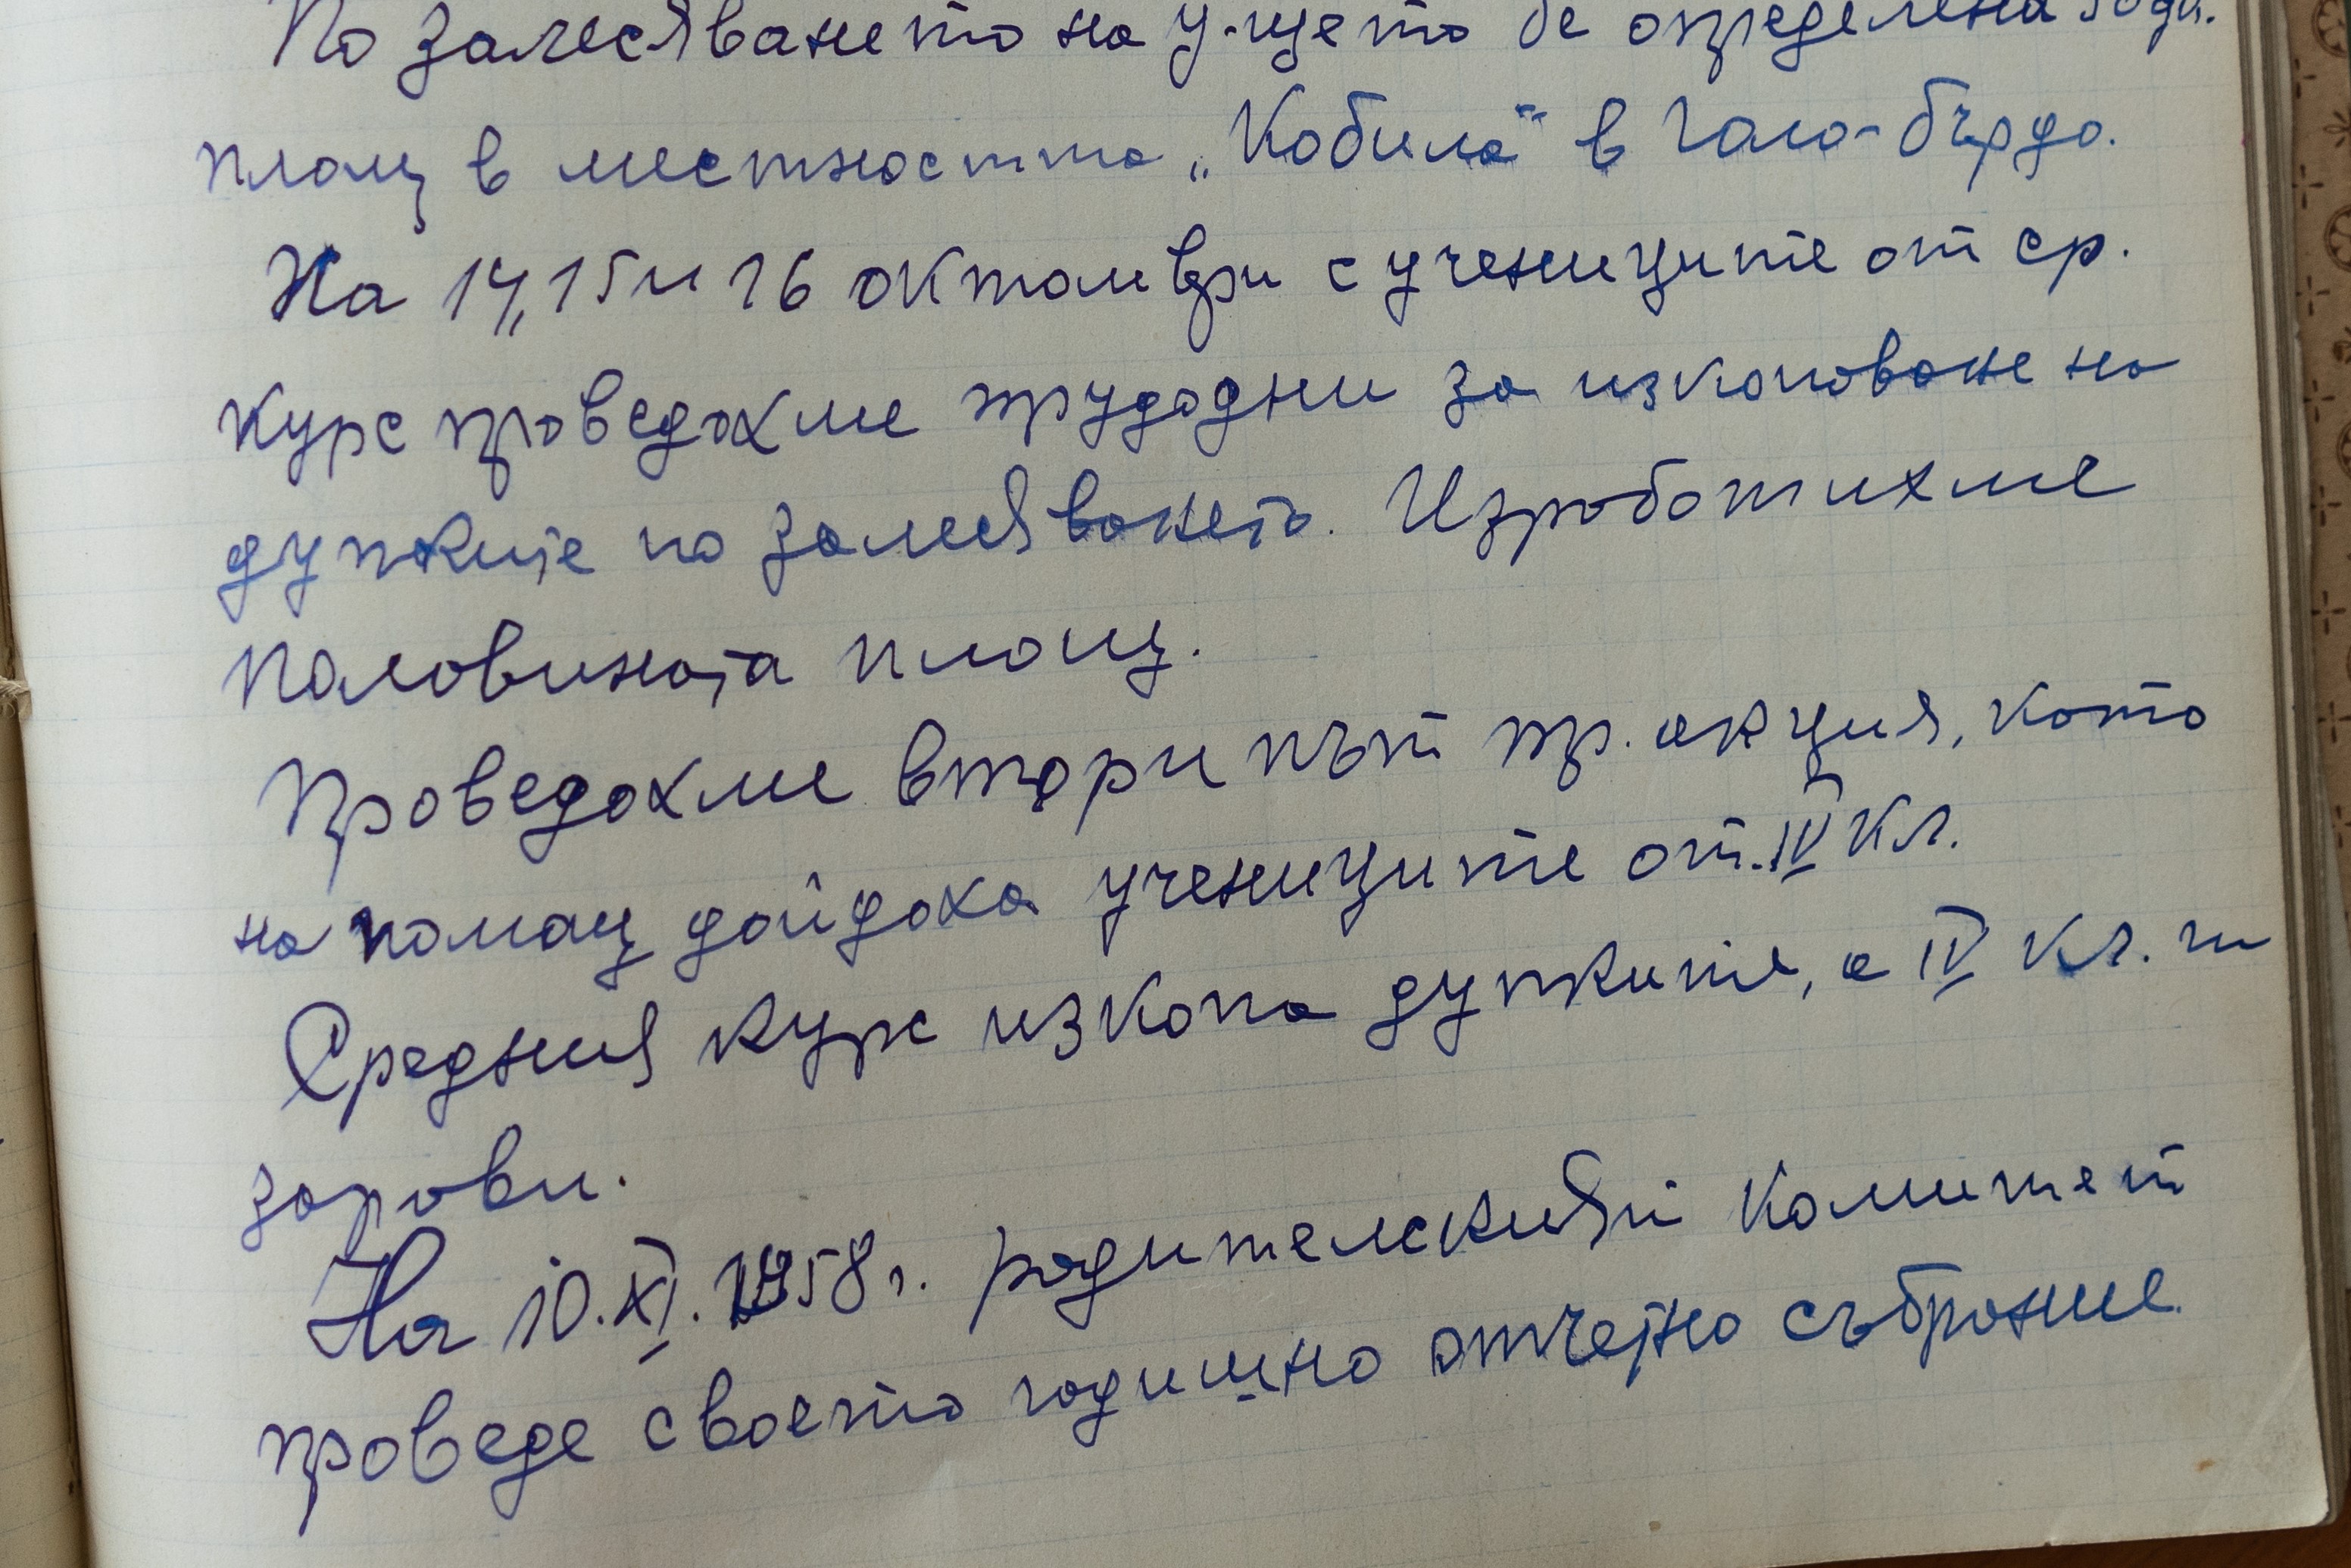 По залесяването на у-щето бе определена
площ в местността „Кобила" в Голо-бърдо.
На 14, 15 и 16 октомври с учениците от ср.
курс проведохме трудодни за изкопаване на
дупките по залесяването. Изработихме
половината площ.
Проведохме втори път тр. акция, като
на помощ дойдоха учениците от IV кл.
Средния курс изкопа дупките, а IV кл. ги
зарови.
На 10.XI.1958 г. родителският комитет
проведе своето годишно отчетно събрание.